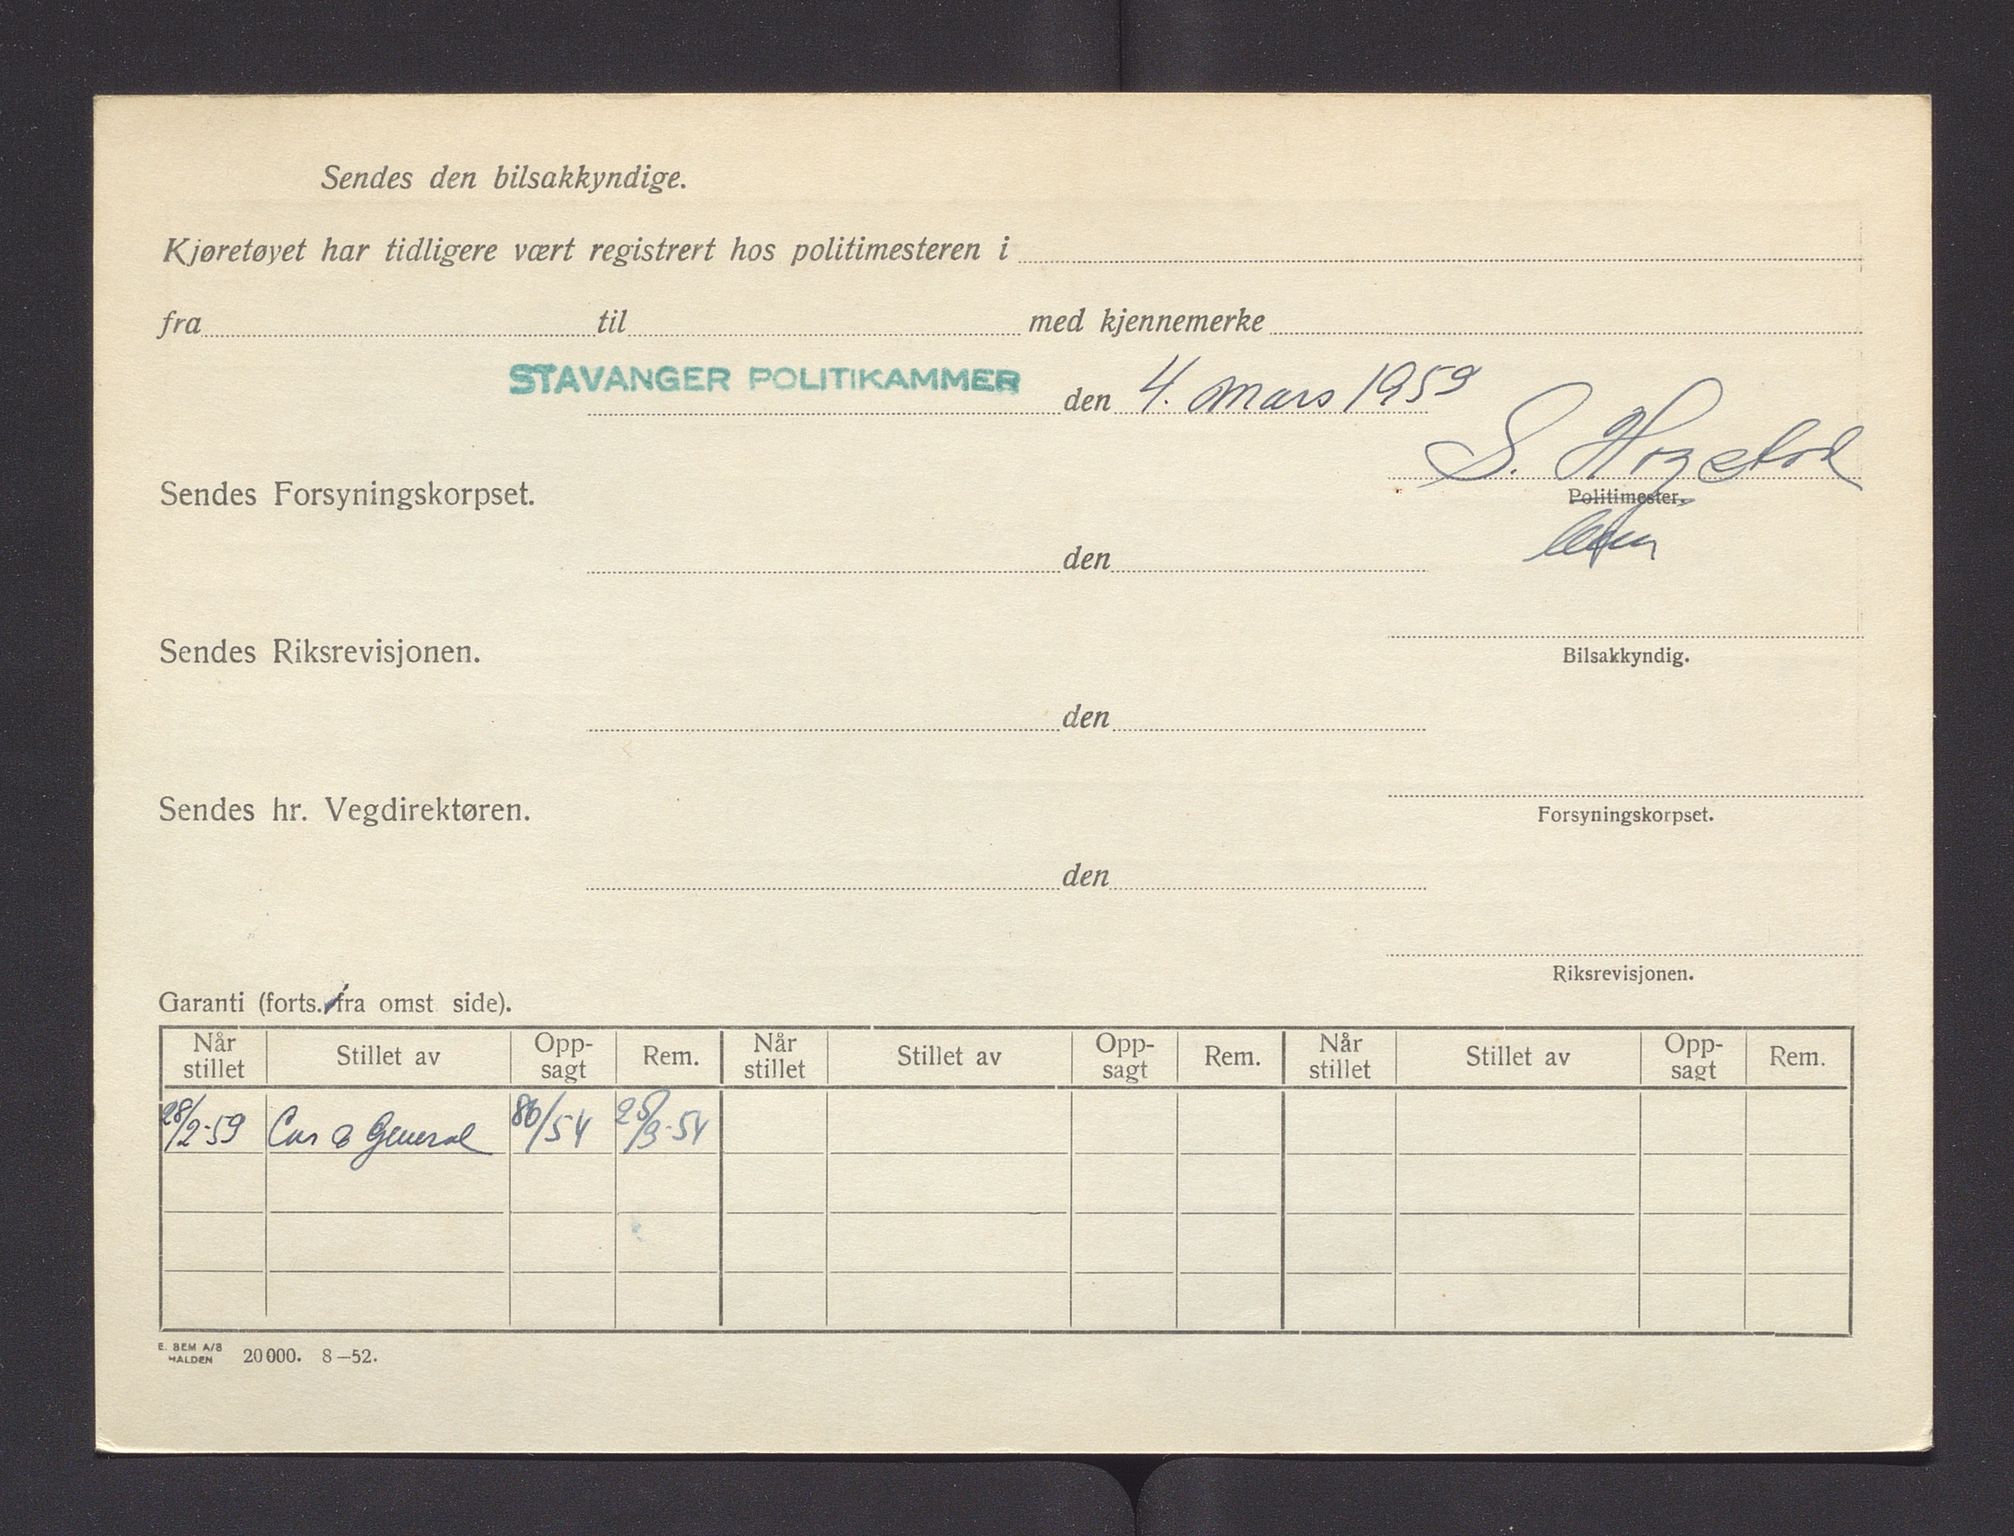 Sendes den bilsakkyndige.
Kjøretøyet har tidligere vært registrert hos politimesteren i
fra til med kjennemerke
STAVANGER POLITIKAMMER den 4. mars 1959
S.
Sendes Forsyningskorpset.
Politimester.
den
Sendes Riksrevisjonen.
Bilsakkyndig.
den
Sendes hr. Vegdirektøren.
Forsyningskorpset.
den
Riksrevisjonen.
Garanti (forts. fra omst side).
Når stillet Stillet av Opp-sagt Rem. Når stillet Stillet av Opp-sagt Rem. Når stillet Stillet av Opp-sagt Rem.
28/2-59 Car & General /54 /3-54
E. SEM A/S
HALDEN 20 000. 8-52.